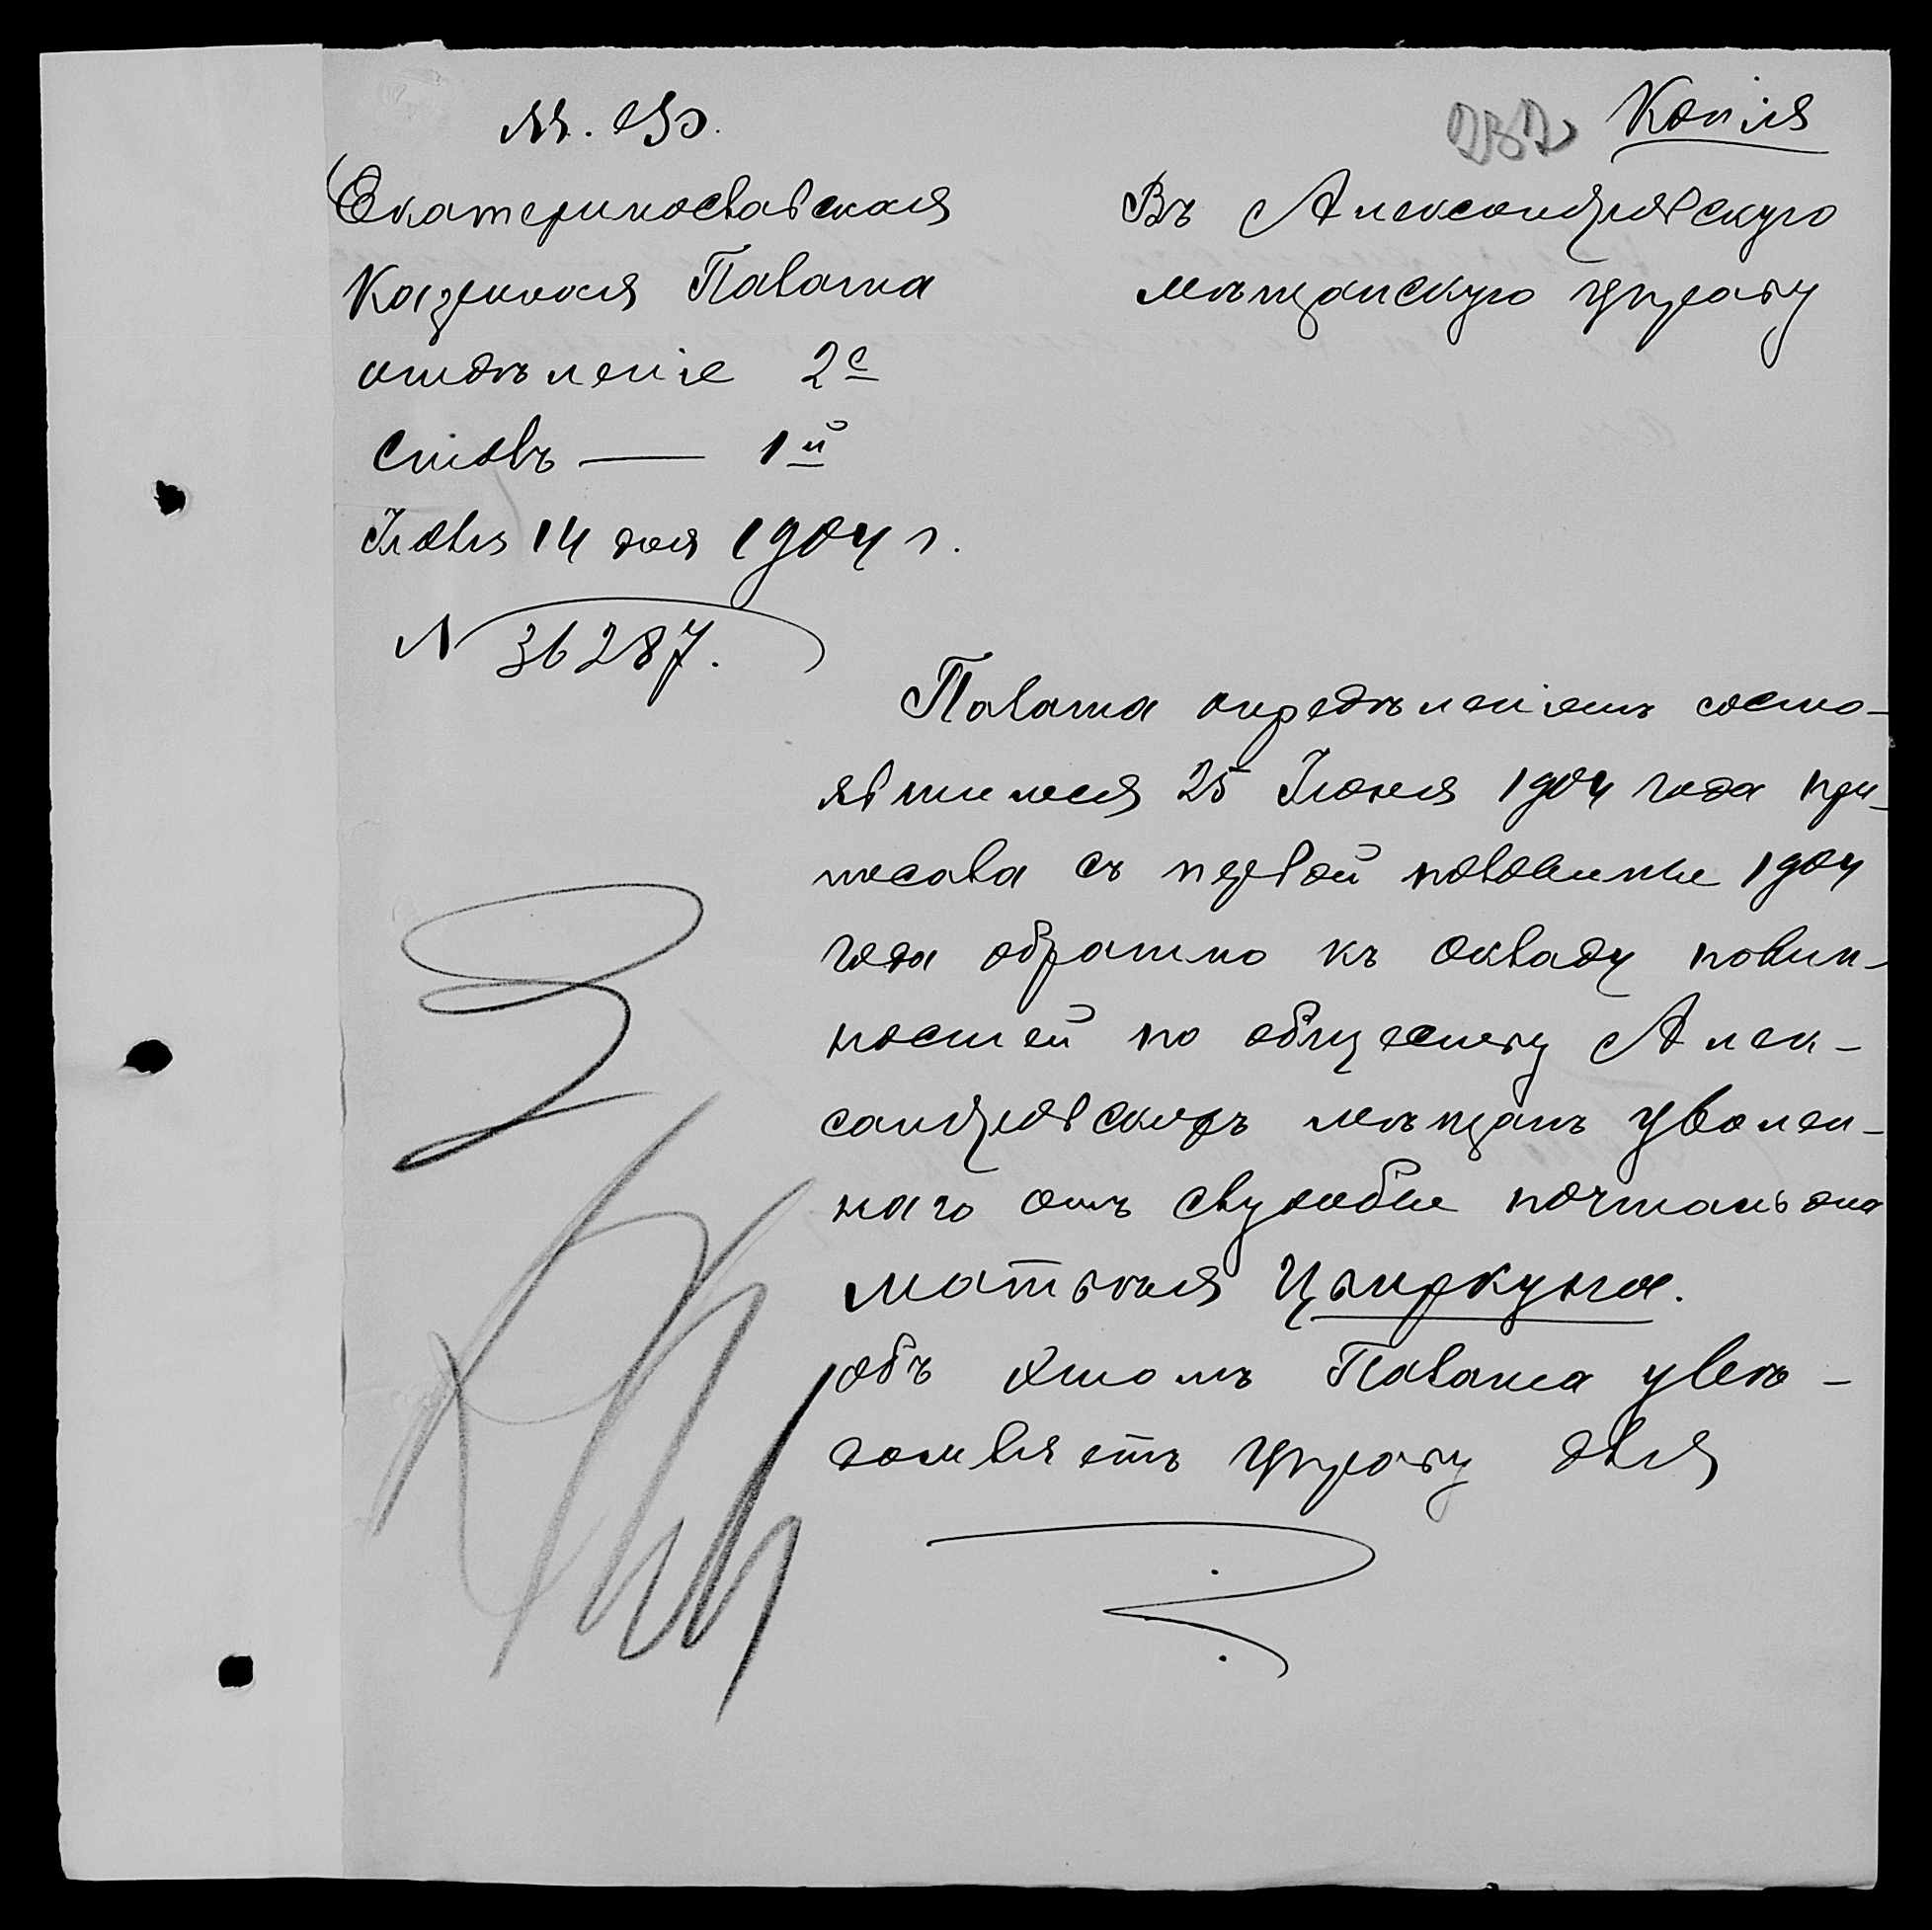 М. Ф.
232 Копія
Екатеринославская
Казенная Палата
отдѣленіе 2е
Столъ — 1й
Іюля 14 дня 1904 г.
N 36287.
Въ Александровскую
мѣщанскую управу
Палата опредѣленіемъ состо-
явшимся 25 Іюня 1904 года при-
писала съ первой половины 1904
года обратно къ окладу повин-
ностей по обществу Алек-
сандровскихъ мѣщанъ уволен-
наго отъ службы почталіона
Матвѣя Цыркуна.
Объ этомъ Палата увѣ-
домляетъ управу для